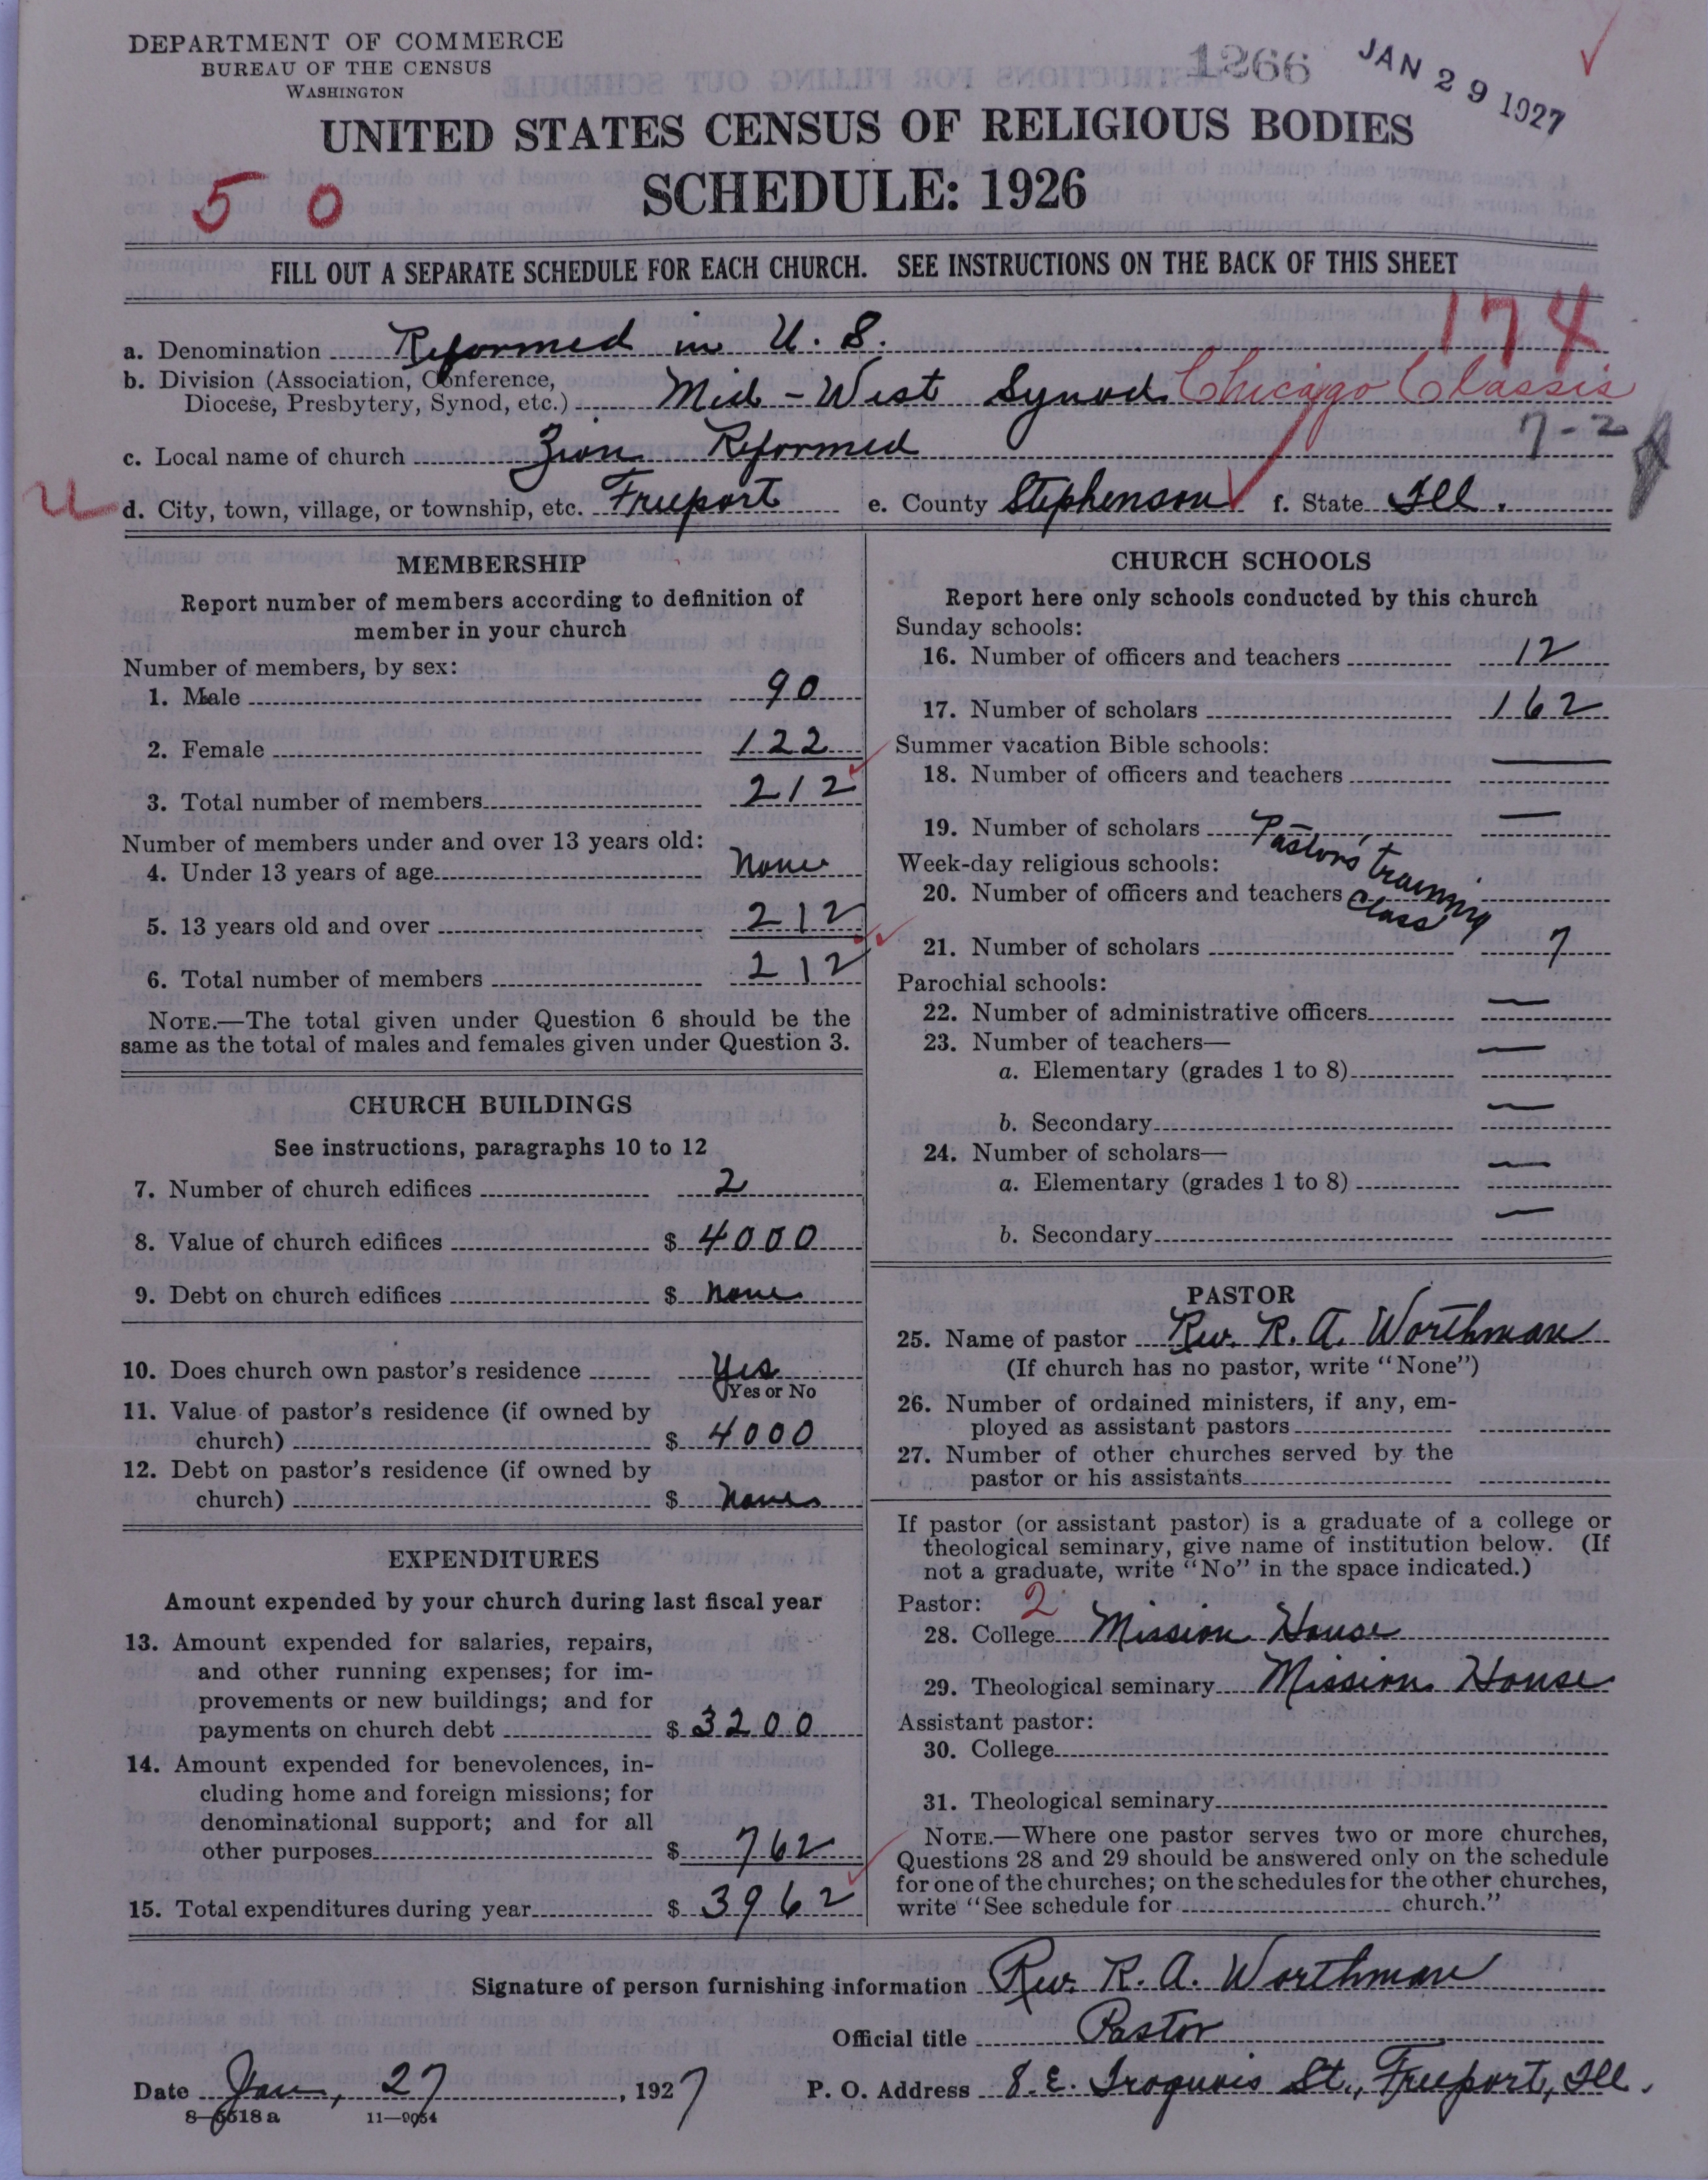 DEPARTMENT OF COMMERCE
BUREAU OF THE CENSUS
WASHINGTON
1266
JAN 29 1927
UNITED STATES CENSUS OF RELIGIOUS BODIES
SCHEDULE: 1926
5 0
FILL OUT A SEPARATE SCHEDULE FOR EACH CHURCH. SEE INSTRUCTIONS ON THE BACK OF THIS SHEET
174
a. Denomination Reformed in U. S.
b. Division (Association, Conference,
Diocese, Presbytery, Synod, etc.) Mid-West Synod Chicago Classis
7-2
c. Local name of church Zion Reformed
d. City, town, village, or township, etc. Freeport e. County Stephenson f. State Ill.
MEMBERSHIP
Report number of members according to definition of
member in your church
Number of members, by sex:
1. Male 90
2. Female 122
3. Total number of members 212
Number of members under and over 13 years old:
4. Under 13 years of age None
5. 13 years old and over 212
6. Total number of members 212
NOTE.—The total given under Question 6 should be the
same as the total of males and females given under Question 3.
CHURCH BUILDINGS
See instructions, paragraphs 10 to 12
7. Number of church edifices 2
8. Value of church edifices $ 4000
9. Debt on church edifices $ None
10. Does church own pastor's residence Yes
Yes or No
11. Value of pastor's residence (if owned by
church) $ 4000
12. Debt on pastor's residence (if owned by
church) $ None
EXPENDITURES
Amount expended by your church during last fiscal year
13. Amount expended for salaries, repairs,
and other running expenses; for im-
provements or new buildings; and for
payments on church debt $ 3200
14. Amount expended for benevolences, in-
cluding home and foreign missions; for
denominational support; and for all
other purposes $ 762
15. Total expenditures during year $ 3962
CHURCH SCHOOLS
Report here only schools conducted by this church
Sunday schools:
16. Number of officers and teachers 12
17. Number of scholars 162
Summer vacation Bible schools:
18. Number of officers and teachers —
19. Number of scholars —
Pastors training
Class
Week-day religious schools:
20. Number of officers and teachers
21. Number of scholars 7
Parochial schools:
22. Number of administrative officers —
23. Number of teachers—
a. Elementary (grades 1 to 8) —
b. Secondary —
24. Number of scholars—
a. Elementary (grades 1 to 8) —
b. Secondary —
PASTOR
25. Name of pastor Rev. R. A. Worthman
(If church has no pastor, write "None")
26. Number of ordained ministers, if any, em-
ployed as assistant pastors
27. Number of other churches served by the
pastor or his assistants
If pastor (or assistant pastor) is a graduate of a college or
theological seminary, give name of institution below. (If
not a graduate, write "No" in the space indicated.)
Pastor: 2
28. College Mission House
29. Theological seminary Mission House
Assistant pastor:
30. College
31. Theological seminary
NOTE.—Where one pastor serves two or more churches,
Questions 28 and 29 should be answered only on the schedule
for one of the churches; on the schedules for the other churches,
write "See schedule for church."
Signature of person furnishing information Rev. R. A. Worthman
Official title Pastor
Date Jan, 27, 1927 P. O. Address 8. E. Iroquois St., Freeport, Ill.
8—5518 a 11—9054